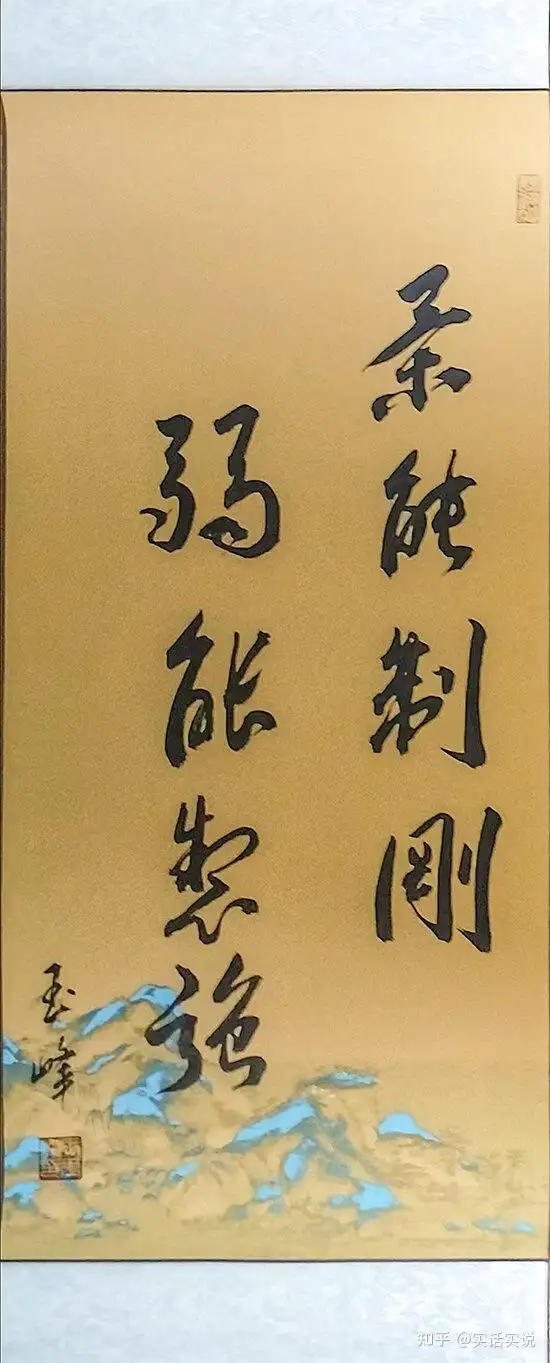 柔能制刚
弱能製強
玉峰
知乎 @实话实说